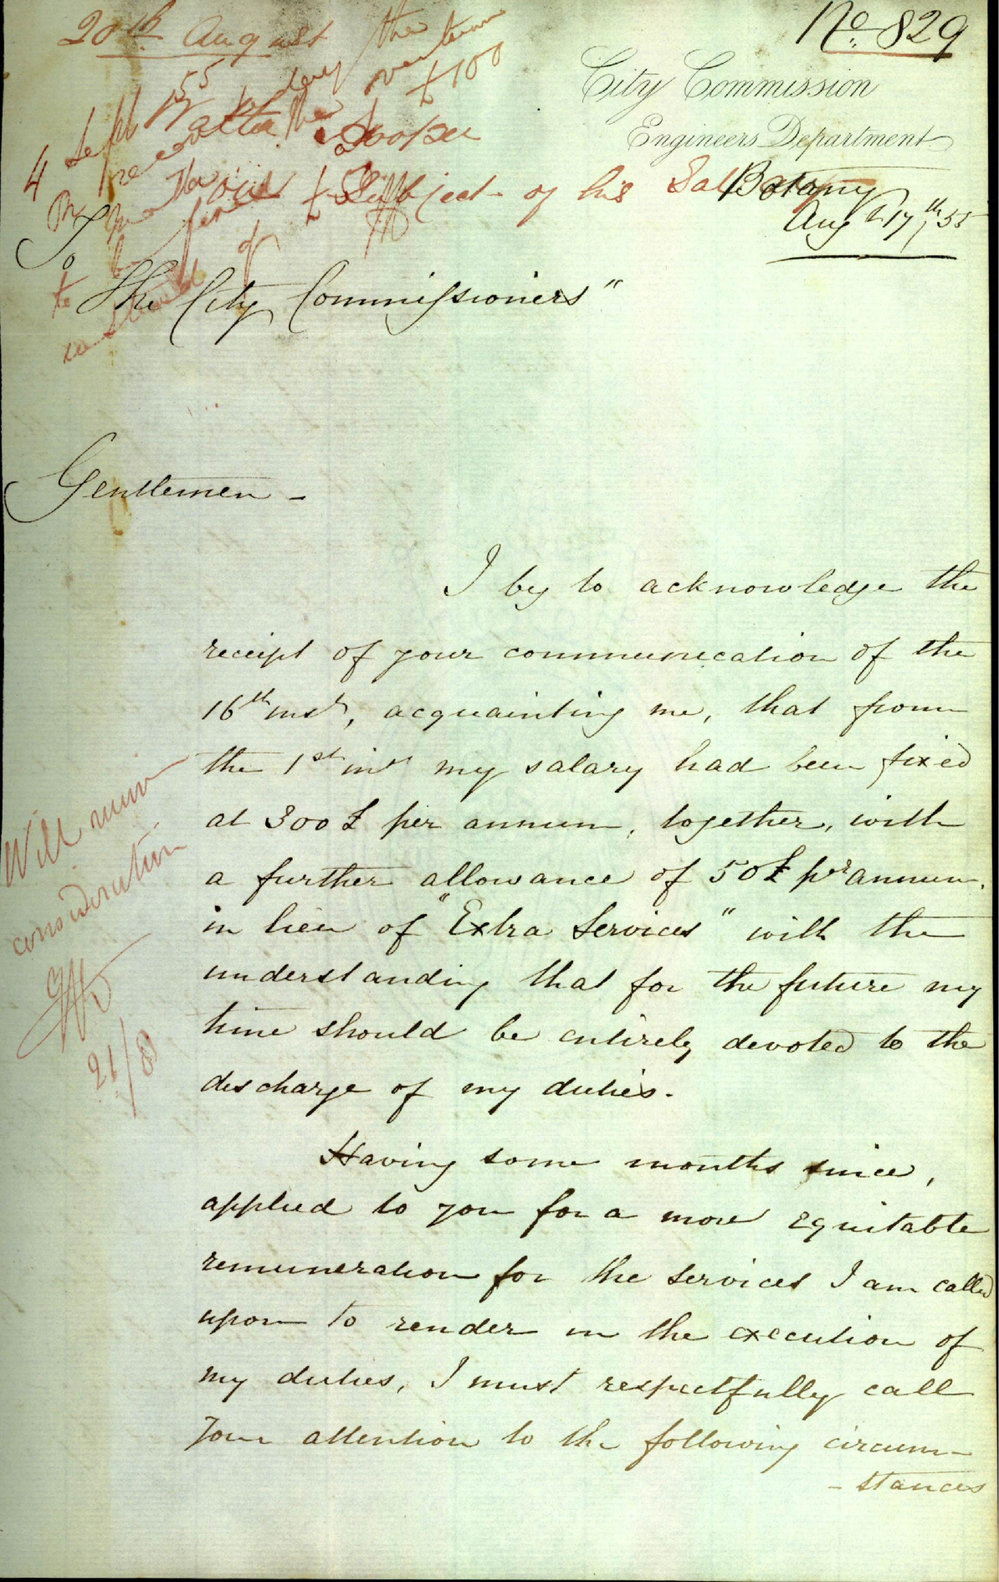 No. 829
20th August
City Commission
Engineers Department
Botany
Augt 17th, 55
4 Sept 55
£100
Subject of his
To
"The City Commissioners"
Gentlemen -
I beg to acknowledge the
receipt of your communication of the
16th inst, acquainting me, that from
the 1st inst my salary had been fixed
at 300£ per annum, together, with
a further allowance of 50£ pr annum.
in lieu of "Extra Services" with the
understanding that for the future my
time should be entirely devoted to the
discharge of my duties.
Will
consideration
21/8
Having some months since,
applied to you for a more equitable
remuneration for the services I am called
upon to render in the execution of
my duties, I must respectfully call
your attention to the following circum-
-stances